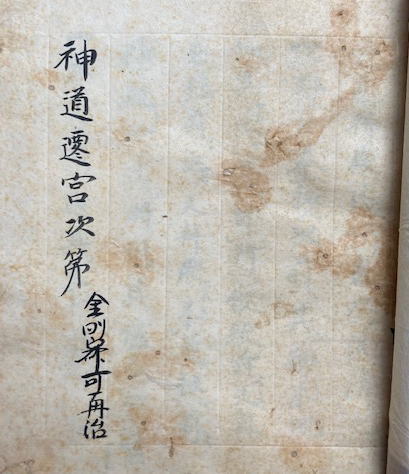 神道遷宮次第
金剛可再治